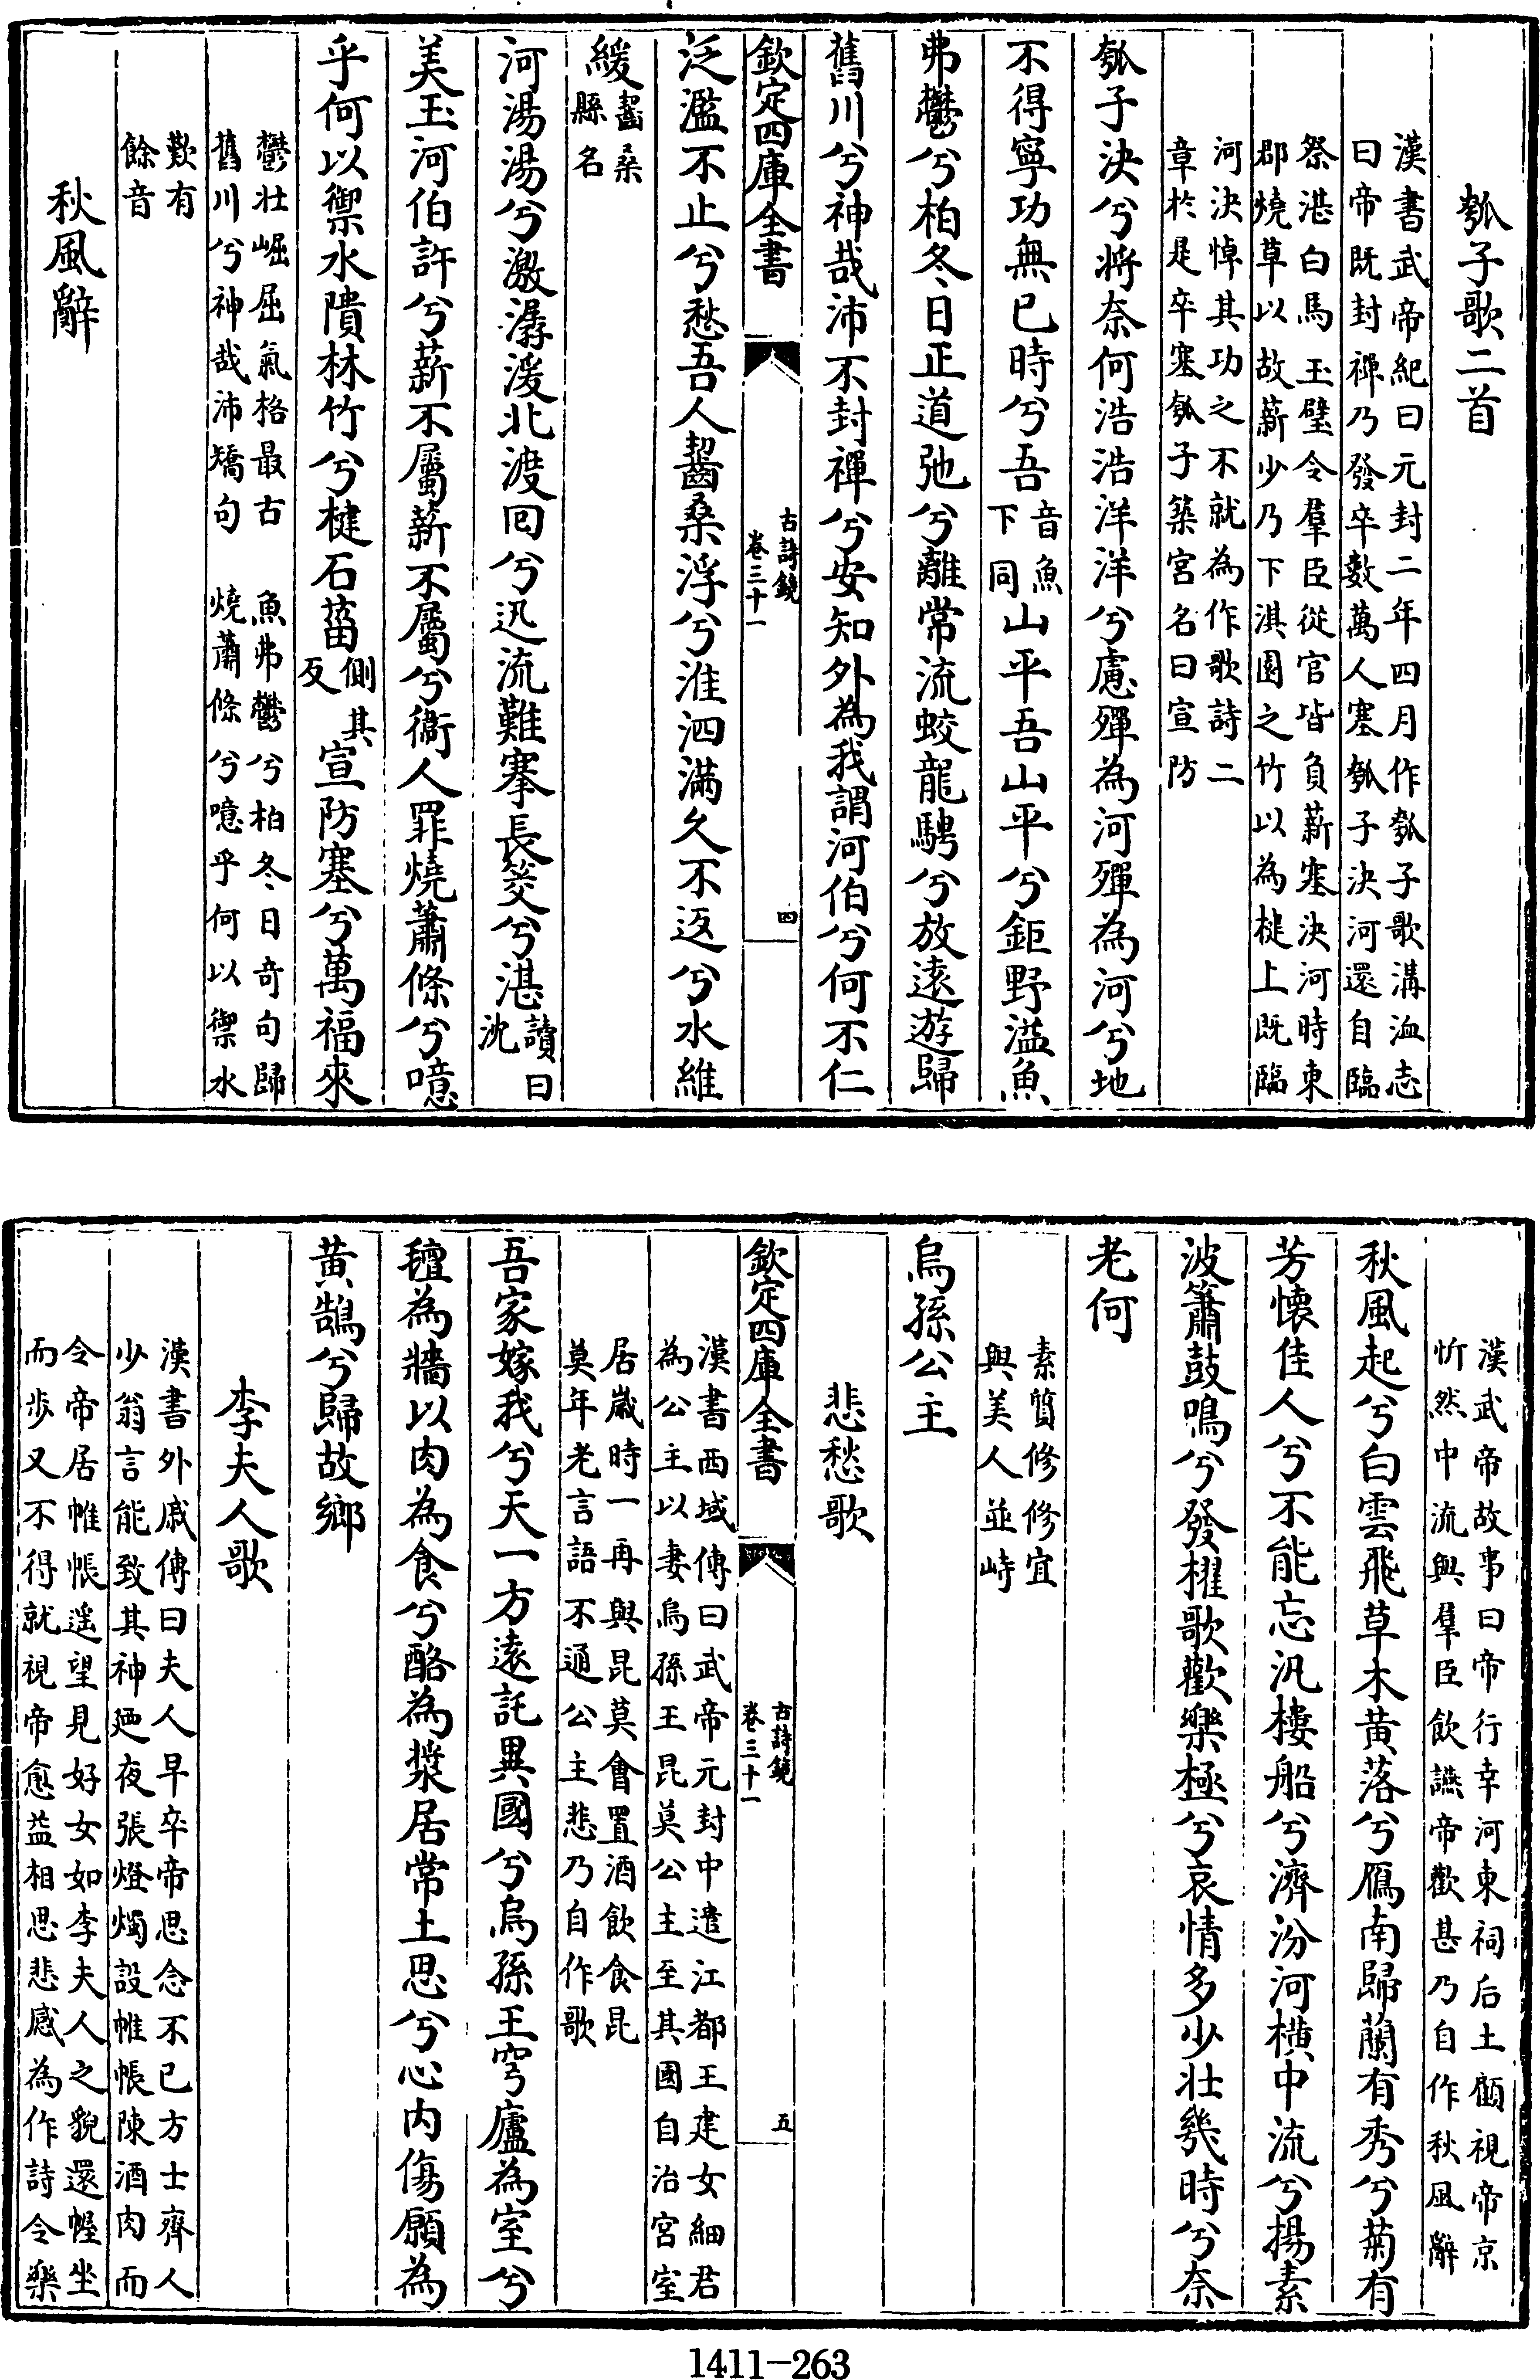 瓠子歌二首
漢書武帝紀曰元封二年四月作瓠子歌溝洫志
曰帝既封禪乃發卒數萬人塞瓠子決河還自臨
祭湛白馬玉璧令羣臣從官皆負薪塞決河時東
郡燒草以故薪少乃下淇園之竹以為楗上既臨
河決悼其功之不就為作歌詩二
章於是卒塞瓠子築宮名曰宣防
瓠子決兮將奈何浩浩洋洋兮慮殫為河殫為河兮地
不得寧功無已時兮吾山平吾山平兮鉅野溢魚
音魚
下同
弗鬱兮柏冬日正道弛兮離常流蛟龍騁兮放遠遊歸
舊川兮神哉沛不封禪兮安知外為我謂河伯兮何不仁
欽定四庫全書
古詩鏡
卷三十一
四
泛濫不止兮愁吾人齧桑浮兮淮泗滿久不返兮水維
緩
齧桑
縣名
河湯湯兮激潺湲北渡回兮迅流難搴長筊兮湛
讀曰
沈
美玉河伯許兮薪不屬薪不屬兮衞人罪燒蕭條兮噫
乎何以禦水隤林竹兮楗石菑
側其
反
宣防塞兮萬福來
鬱壯崛屈氣格最古 魚弗鬱兮柏冬日奇句歸
舊川兮神哉沛矯句 燒蕭條兮噫乎何以禦水
歎有
餘音
秋風辭
漢武帝故事曰帝行幸河東祠后土顧視帝京
忻然中流與羣臣飲讌帝歡甚乃自作秋風辭
秋風起兮白雲飛草木黃落兮鴈南歸蘭有秀兮菊有
芳懷佳人兮不能忘汎樓船兮濟汾河橫中流兮揚素
波簫鼓鳴兮發櫂歌歡樂極兮哀情多少壯幾時兮奈
老何
素質修修宜
與美人並峙
烏孫公主
悲愁歌
欽定四庫全書
古詩鏡
卷三十一
五
漢書西域傳曰武帝元封中遣江都王建女細君
為公主以妻烏孫王昆莫公主至其國自治宮室
居嵗時一再與昆莫會置酒飲食昆
莫年老言語不通公主悲乃自作歌
吾家嫁我兮天一方遠託異國兮烏孫王穹廬為室兮
氊為牆以肉為食兮酪為漿居常土思兮心内傷願為
黃鵠兮歸故鄉
李夫人歌
漢書外戚傳曰夫人早卒帝思念不已方士齊人
少翁言能致其神廼夜張燈燭設帷帳陳酒肉而
令帝居帷帳遥望見好女如李夫人之貌還幄坐
而步又不得就視帝愈益相思悲感為作詩令樂
1411-263